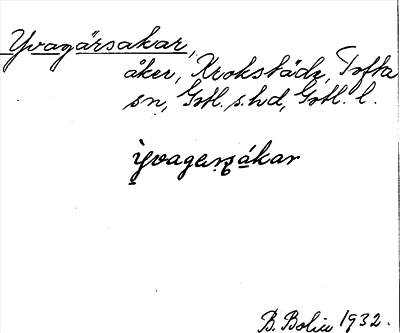 Yvagärsakar,
åker, Krokstäde, Tofta
sn, Gotl. s. hd, Gotl. l.
ỳvagäṛsákar
B. Bolin 1932.